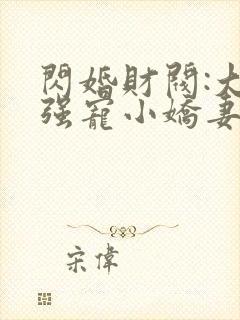 閃婚財閥:大
强寵小嬌妻
宋偉